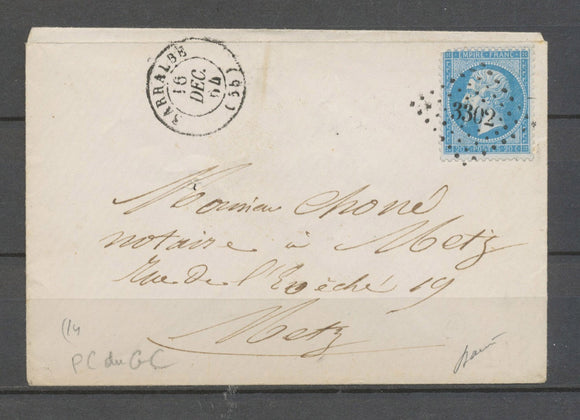 SARRALBE
(55)
16
DEC.
64
EMPIRE FRANC
3302
20 C POSTES 20 C
Monsieur Choné
notaire à Metz
Rue de l'Evêché 19
Metz
PC du GC